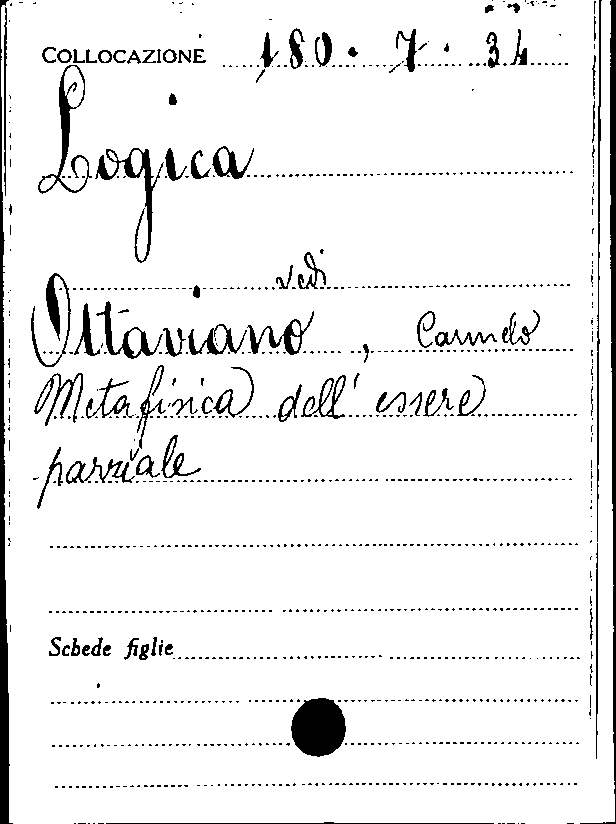 COLLOCAZIONE 180. 7. 34
Logica
vedi
Ottaviano, Carmelo
Metafisica dell'essere
parziale
Schede figlie